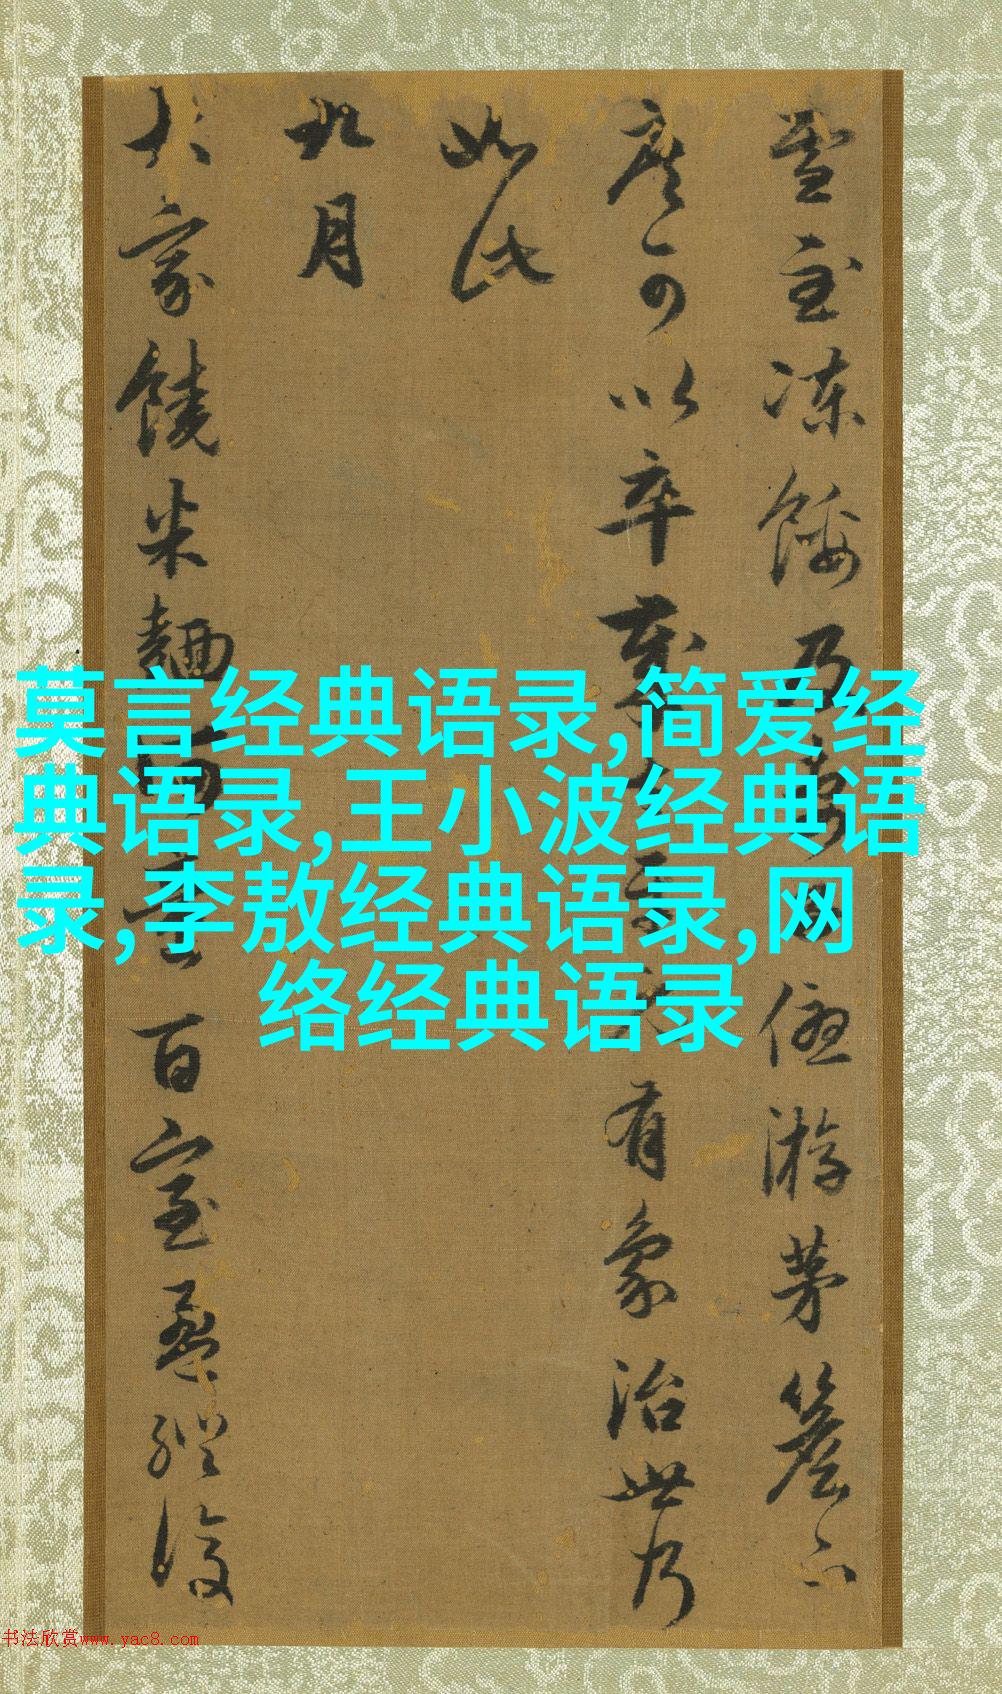 雪至冻餧乃
偃游茅簷下
庶可以卒岁
有象治世乃
如此
九月
大家饶米麵
百室盈纵复
莫言经典语录,简爱经
典语录,王小波经典语
录,李敖经典语录,网
络经典语录
书法欣赏www.yac8.com